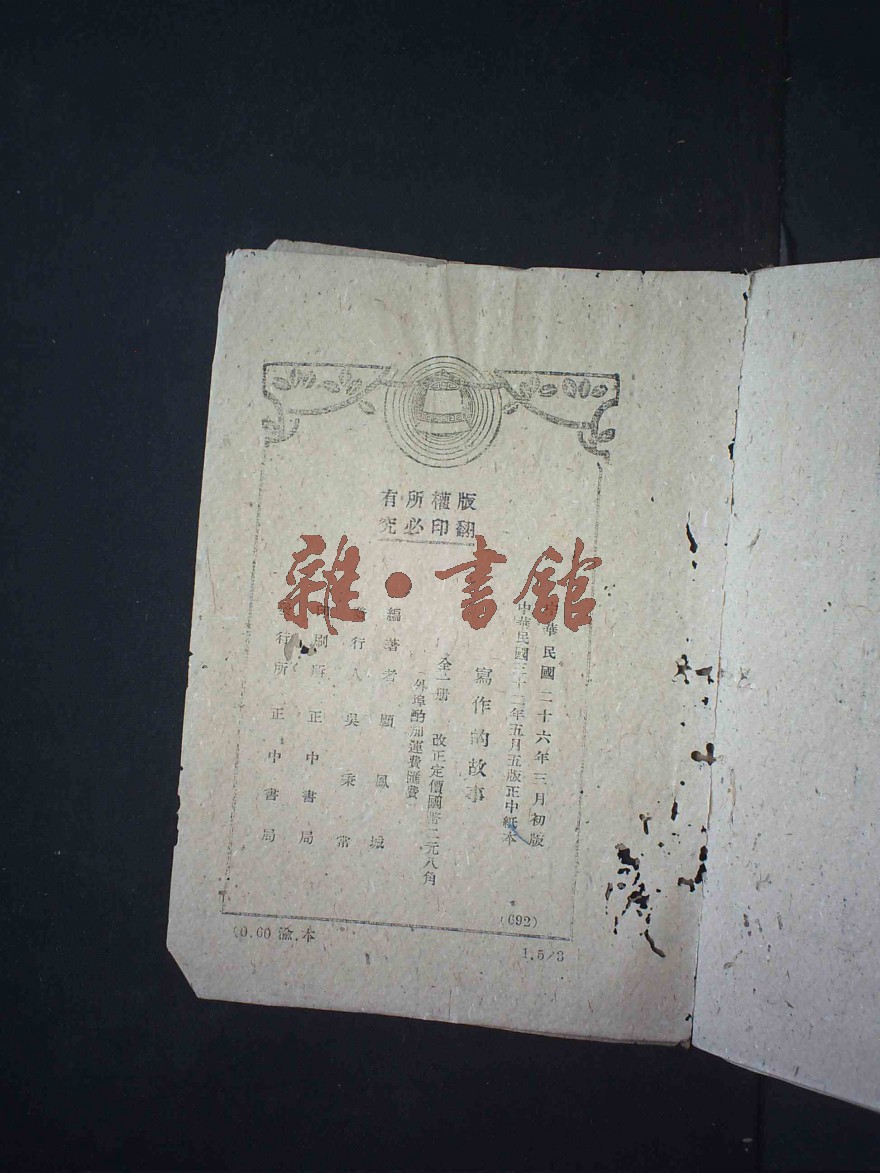 版權所有
翻印必究
中華民國二十六年三月初版
中華民國三十二年五月五版正中紙本
寫作的故事
全一册 改正定價國幣二元八角
(外埠酌加運費匯費
編著者 顧鳳城
發行人 吳秉常
印刷所 正中書局
發行所 正中書局
(692)
(0.60 渝.本
1.5/3
雜·書館